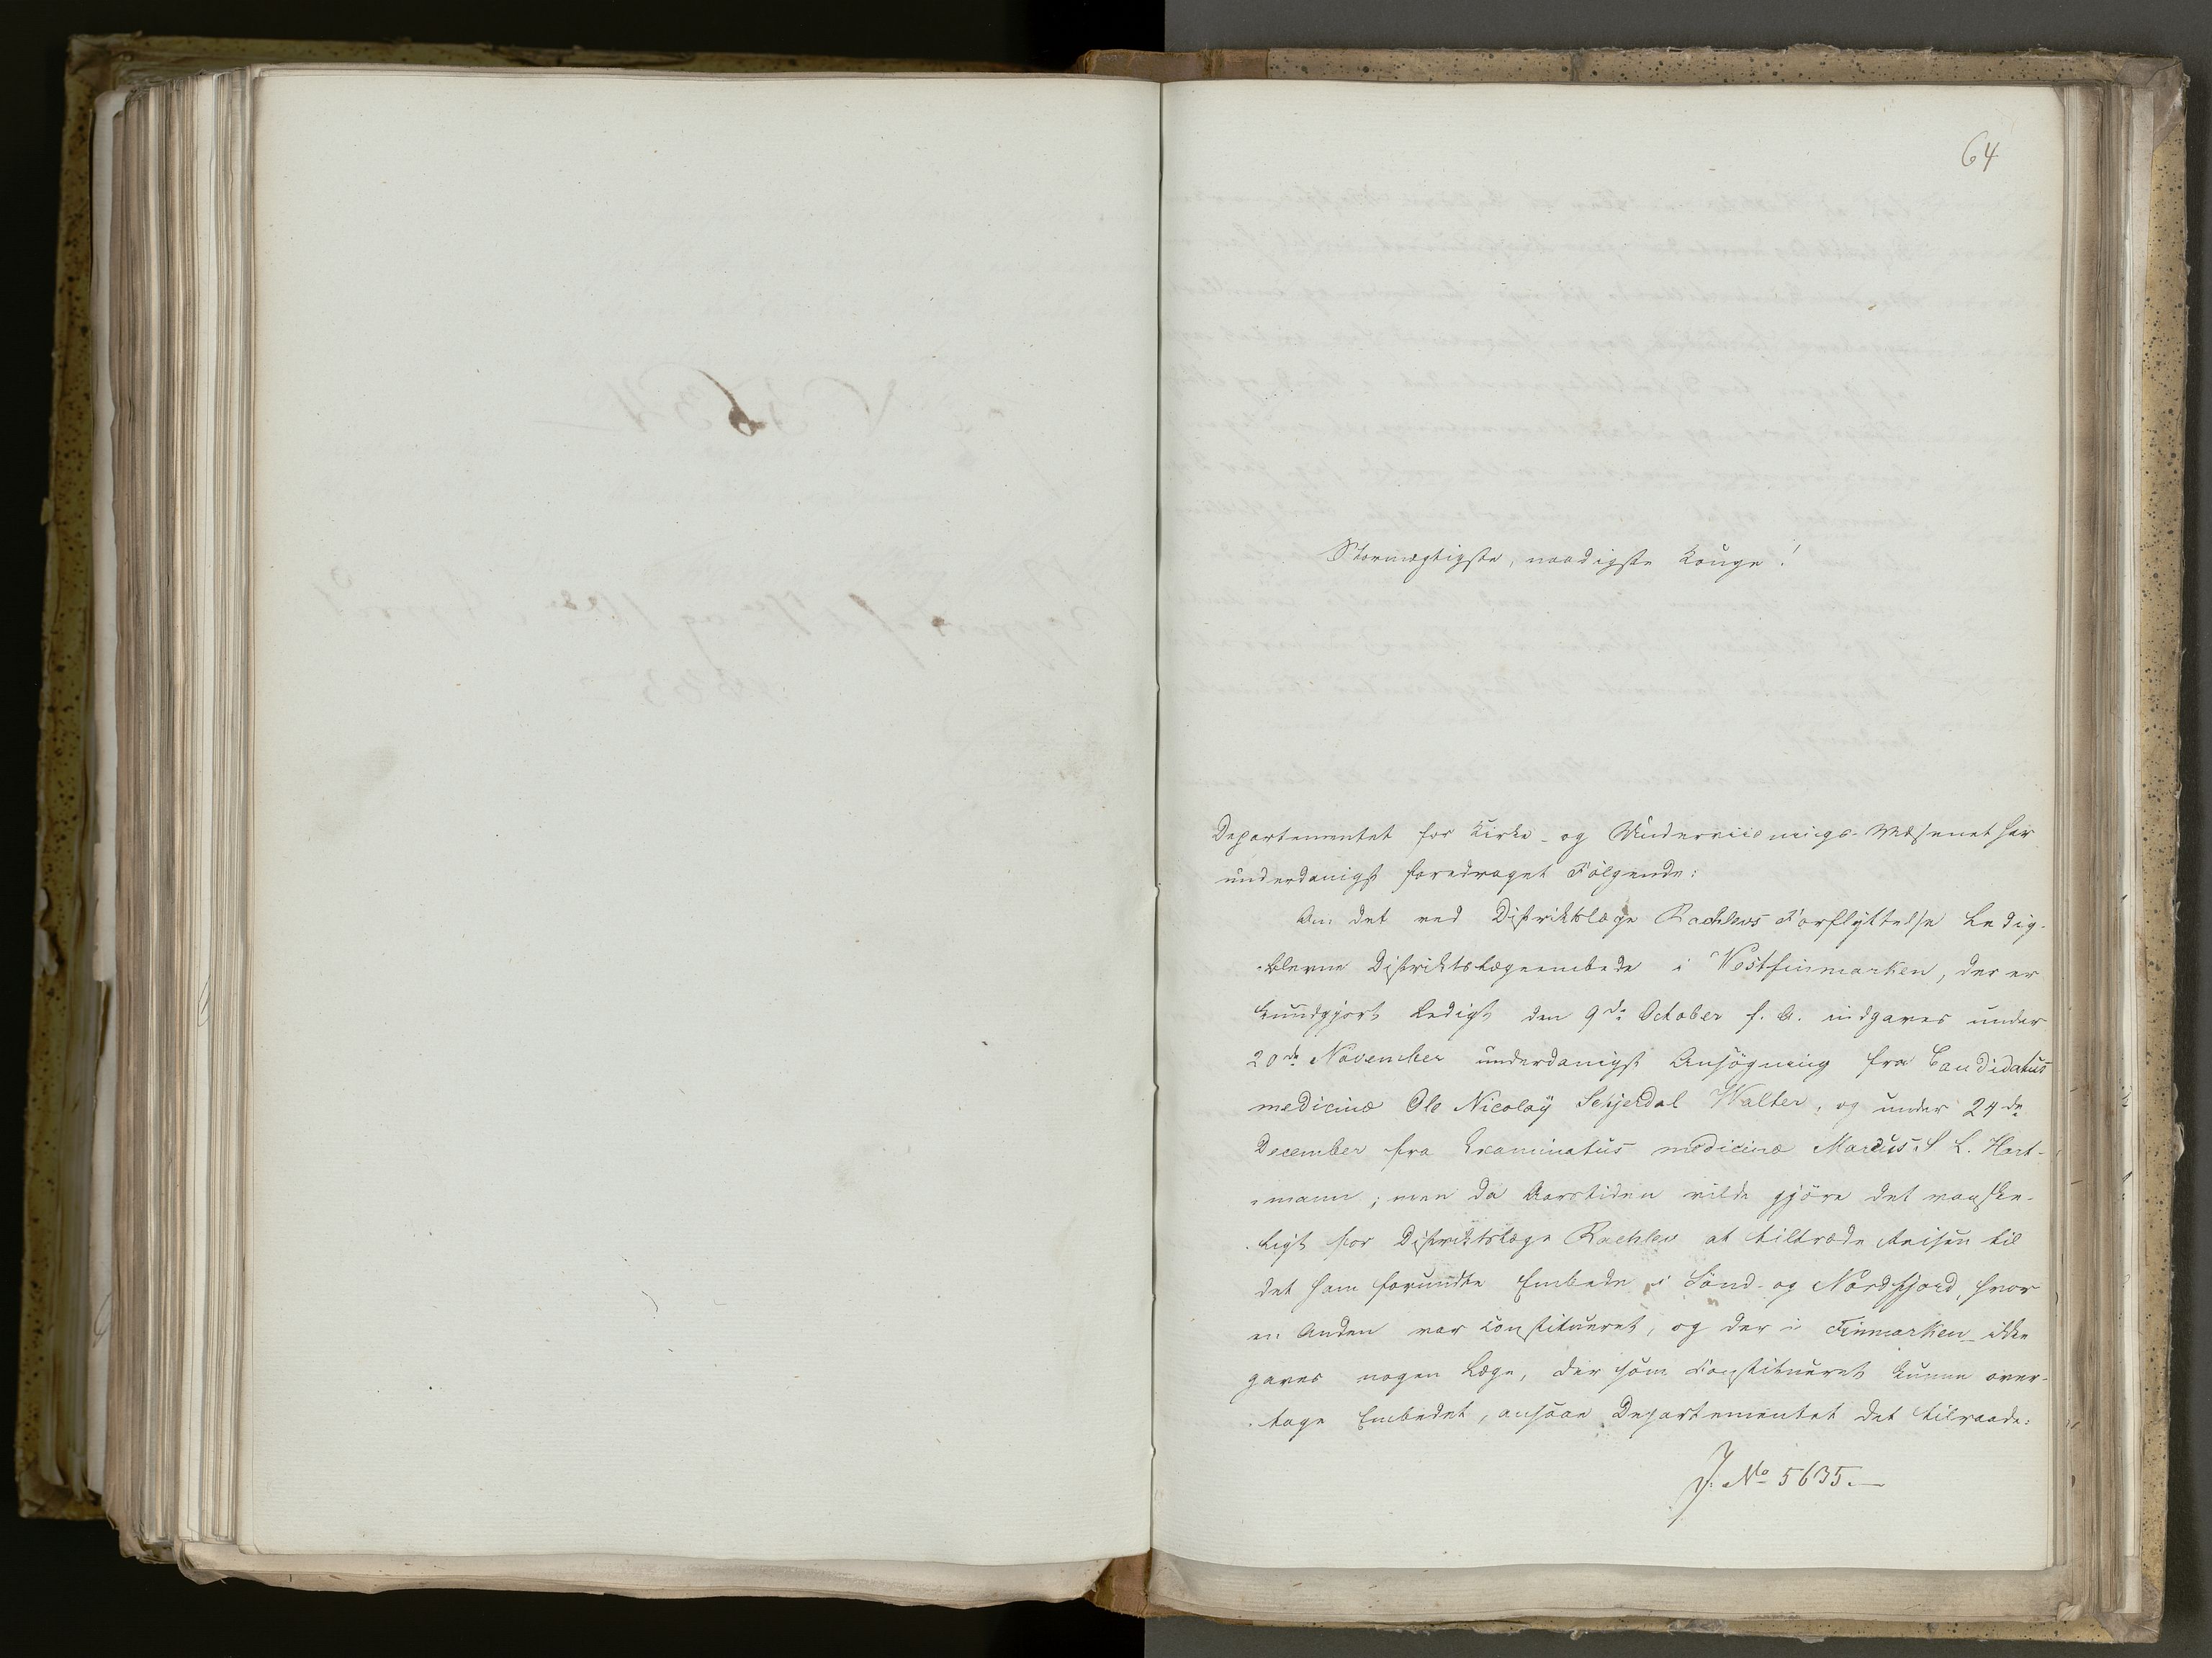 64
Stormægtigste, naadigste Konge!
Departementet for Kirke- og Underviisnings-Væsenet har
underdanigst foredraget Følgende:
Om det ved Distriktslæge Rachlews Forflyttelse ledig-
blevne Distriktslægeembede i Vestfinmarken, der er
kundgjort ledigt den 9de October f. A. indgaves under
20de November underdanigst Ansøgning fra Candidatus
medicinæ Ole Nicolay Schjerdal Walter, og under 24de
December fra Examinatus medicinæ Marcus S L. Hart-
mann; men da Aarstiden vilde gjøre det vanske-
ligt for Distriktslæge Rachlew at tiltræde Reisen til
det ham forundte Embede i Sønd- og Nordfjord, hvor
en Anden var constitueret, og der i Finmarken ikke
gaves nogen Læge, der som Constitueret kunne over-
tage Embedet, ansaae Departementet det tilraade:
J. No 5635.